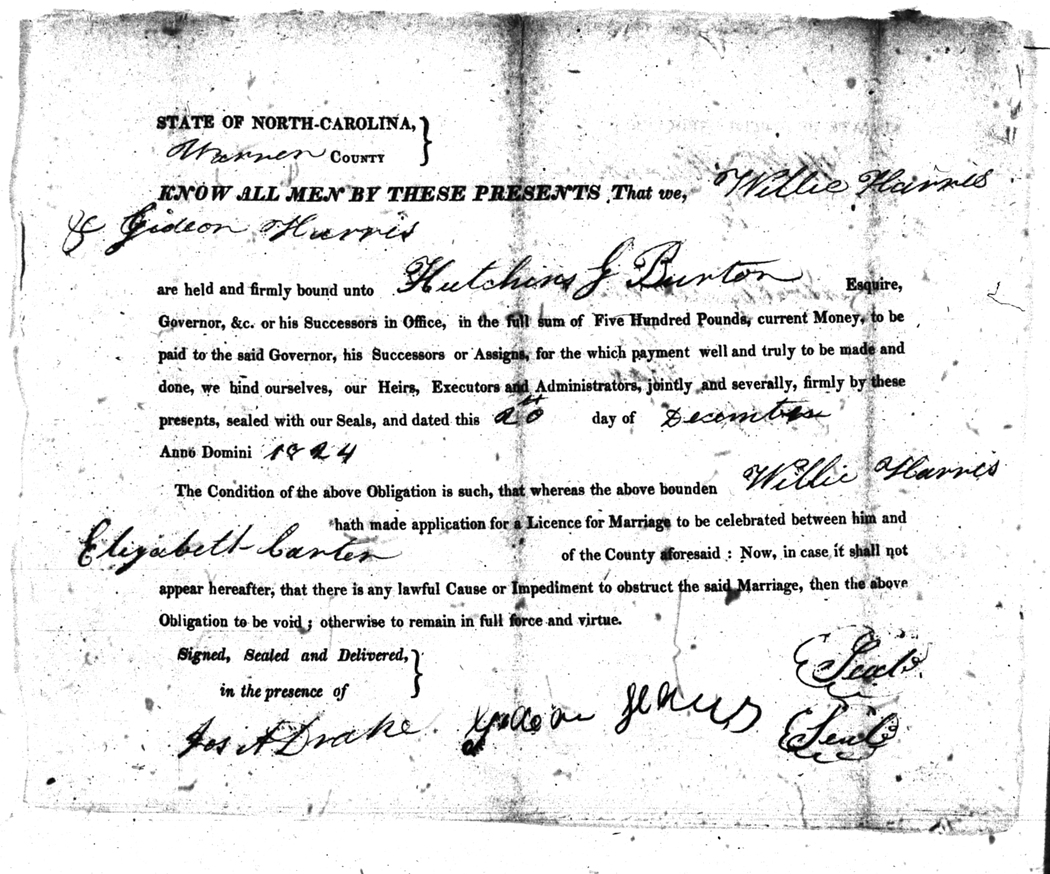 STATE OF NORTH-CAROLINA,
Warren COUNTY
KNOW ALL MEN BY THESE PRESENTS That we, Willie Harris
& Gideon Harris
are held and firmly bound unto Hutchins G Burton Esquire,
Governor, &c. or his Successors in Office, in the full sum of Five Hundred Pounds, current Money, to be
paid to the said Governor, his Successors or Assigns, for the which payment well and truly to be made and
done, we bind ourselves, our Heirs, Executors and Administrators, jointly and severally, firmly by these
presents, sealed with our Seals, and dated this 20th day of December
Anno Domini 1824
The Condition of the above Obligation is such, that whereas the above bounden Willie Harris
hath made application for a Licence for Marriage to be celebrated between him and
Elizabeth Carter of the County aforesaid : Now, in case it shall not
appear hereafter, that there is any lawful Cause or Impediment to obstruct the said Marriage, then the above
Obligation to be void ; otherwise to remain in full force and virtue.
Signed, Sealed and Delivered,
in the presence of
Seal
Jos A Drake Gideon Harris Seal